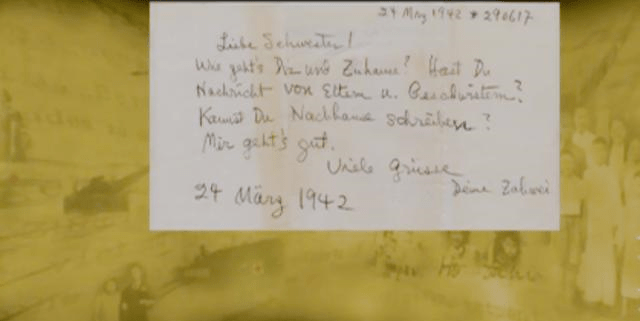 24 Mrz 1942 * 290617
Liebe Schwester!
Wie geht's Dir und Zuhause? Hast Du
Nachricht von Eltern u. Geschwistern?
Kannst Du Nachhause schreiben?
Mir geht's gut.
Viele grüsse
Deine
24 März 1942